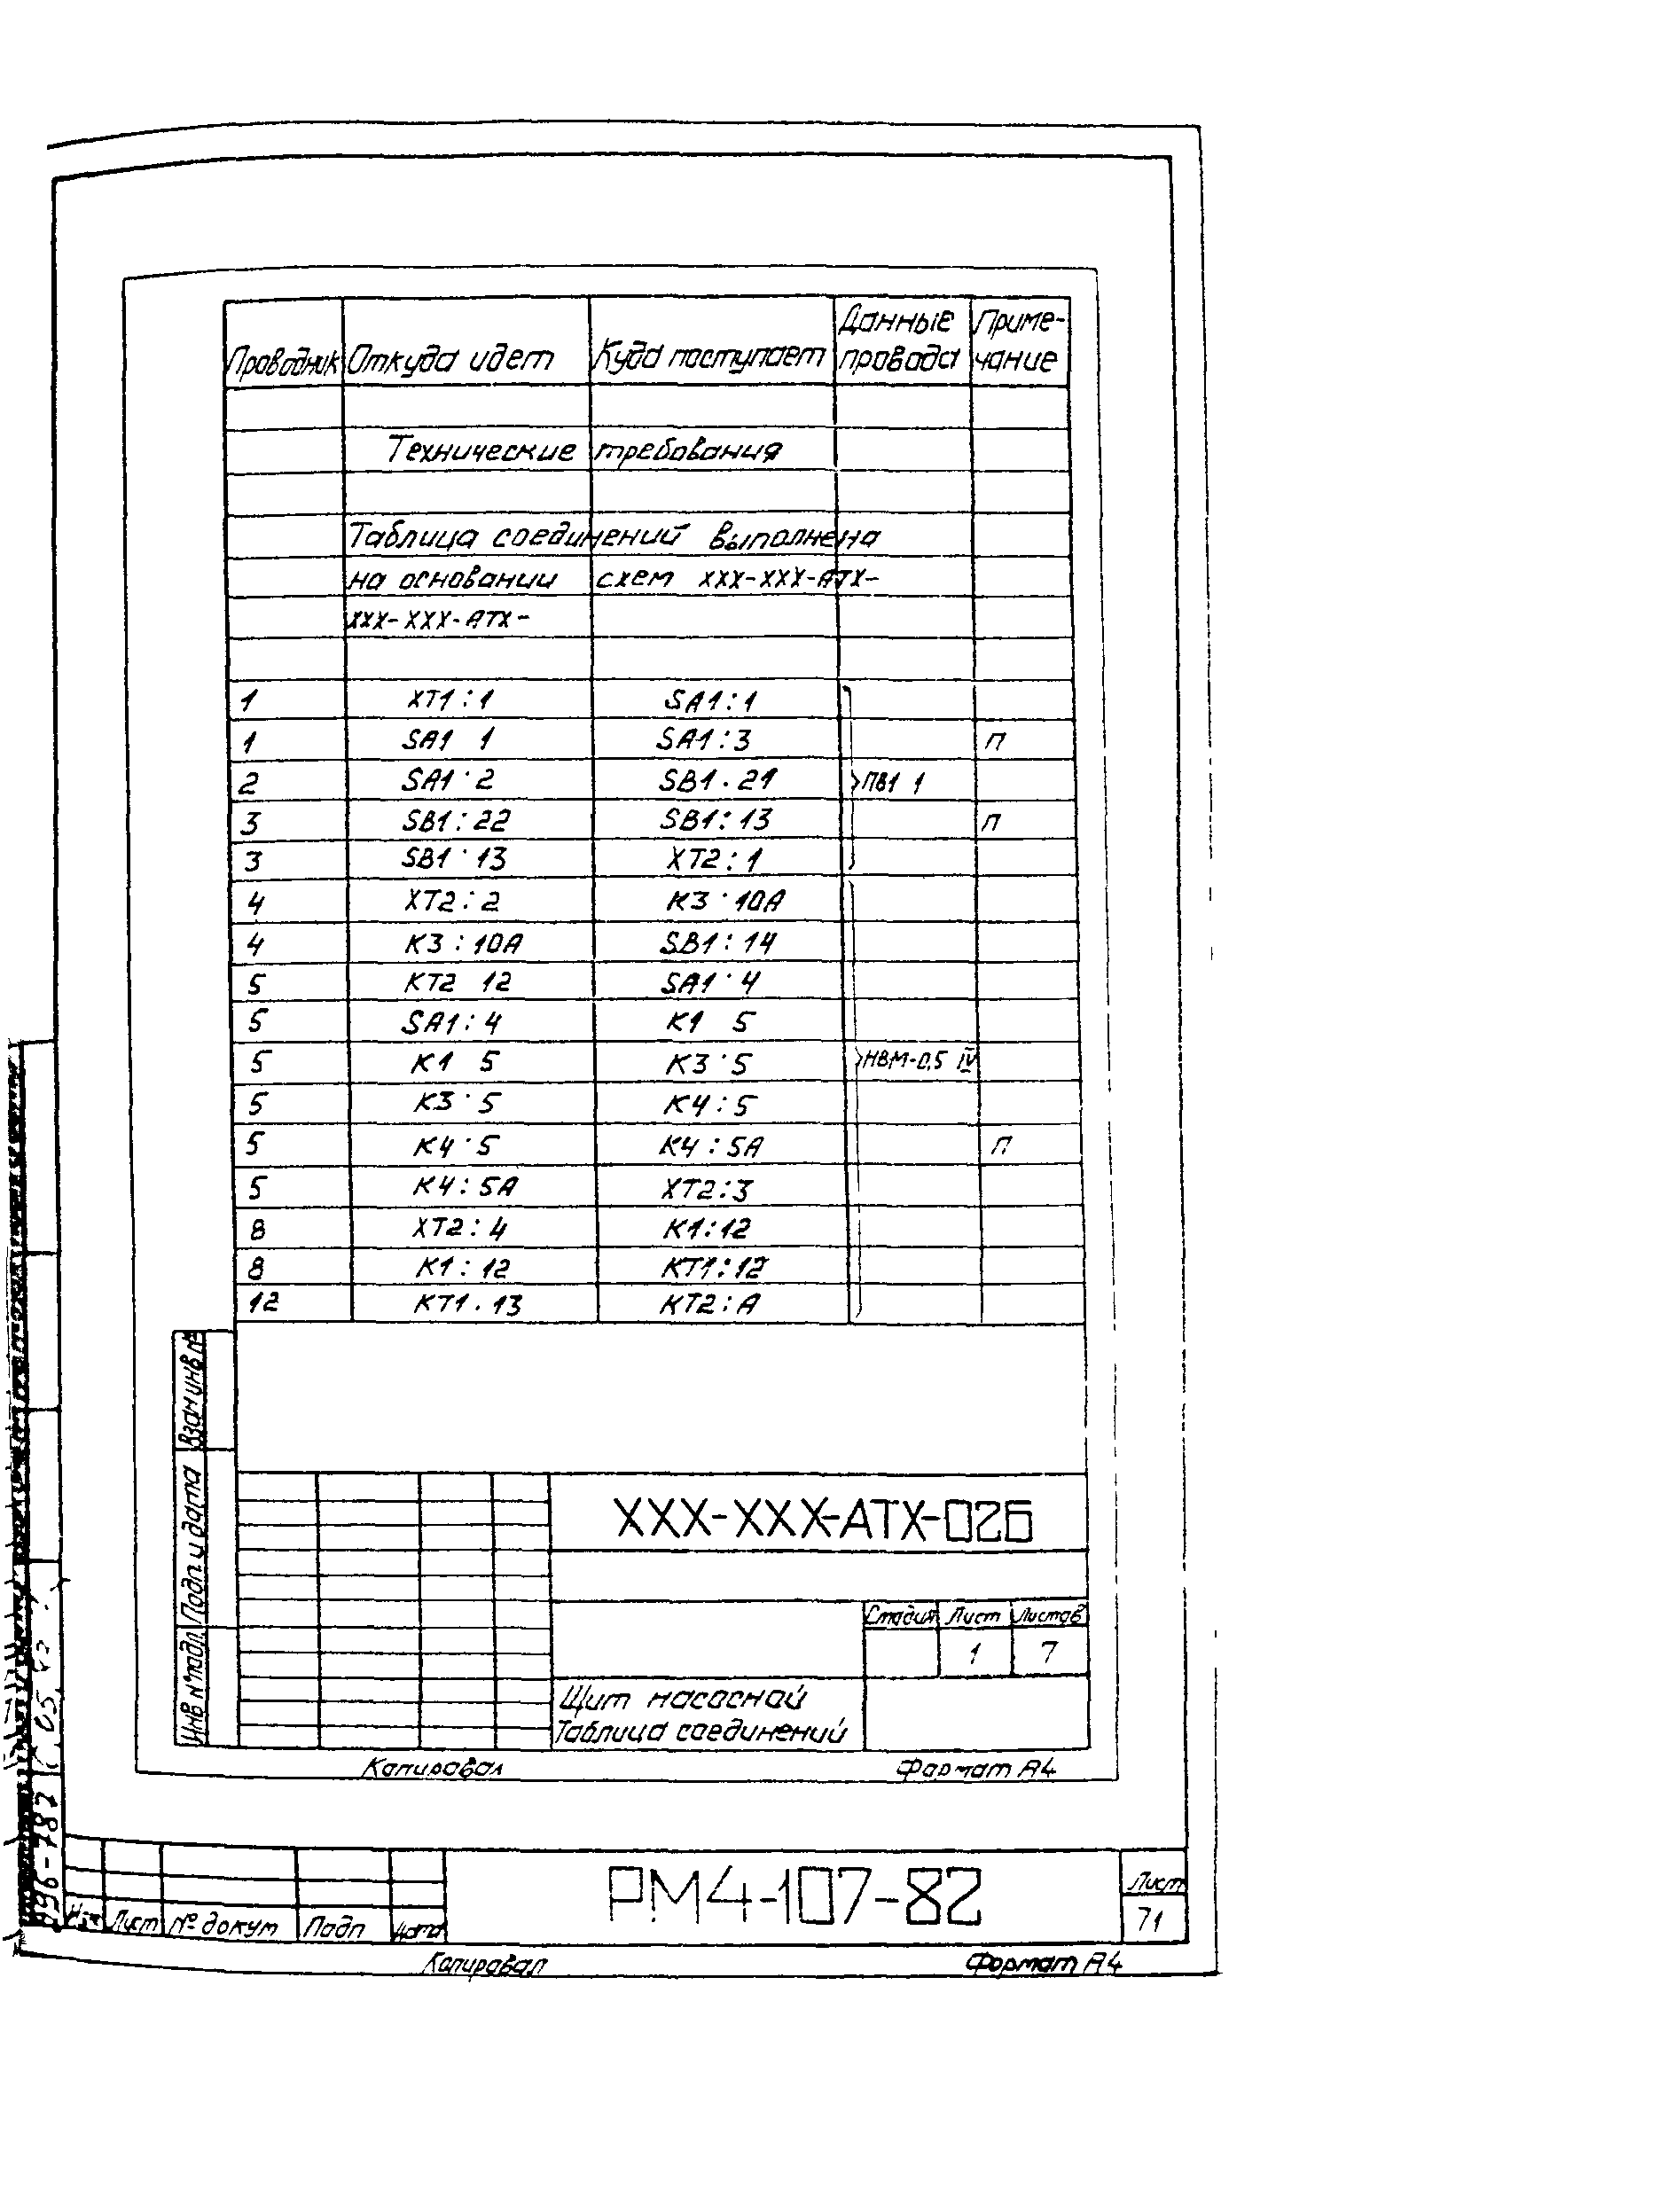 Проводник Откуда идет Куда поступает Данные провода Приме-чание
Технические требования
Таблица соединений выполнена
на основании схем XXX-XXX-АТХ-
XXX-XXX-АТХ-
1 XT1:1 SA1:1
1 SA1 1 SA1:3 П
2 SA1·2 SB1.21 ПВ1 1
3 SB1:22 SB1:13 П
3 SB1·13 XT2:1
4 XT2:2 K3·10A
4 K3:10A SB1:14
5 KT2 12 SA1·4
5 SA1:4 K1 5
5 K1 5 K3·5 НВМ-0,5 IV
5 K3·5 K4:5
5 K4·5 K4:5A П
5 K4:5A XT2:3
8 XT2:4 K1:12
8 K1:12 KT1:12
12 KT1.13 KT2:A
Взам инв №
Подп и дата
Инв № подл.
XXX-XXX-АТХ-026
Стадия Лист Листов
1 7
Щит насосной
Таблица соединений
Копировал Формат А4
РМ4-107-82
Лист
71
Лист № докум Подп Дата
Копировал Формат А4